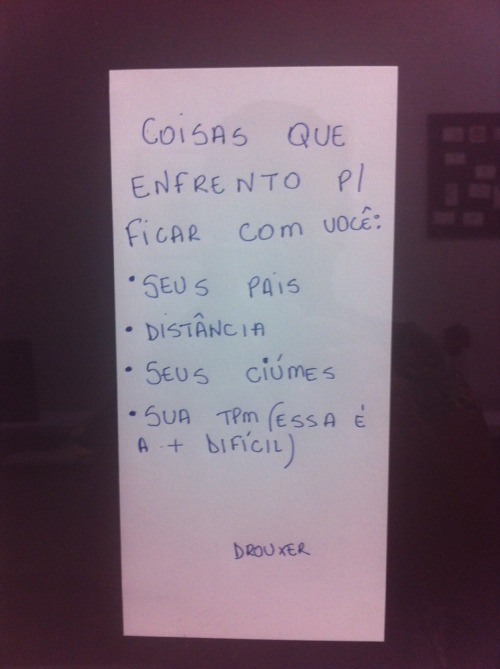 COISAS QUE
ENFRENTO P/
FICAR COM VOCÊ:
• SEUS PAIS
• DISTÂNCIA
• SEUS CIÚMES
• SUA TPM (ESSA É
A + DIFÍCIL)
DROUXER